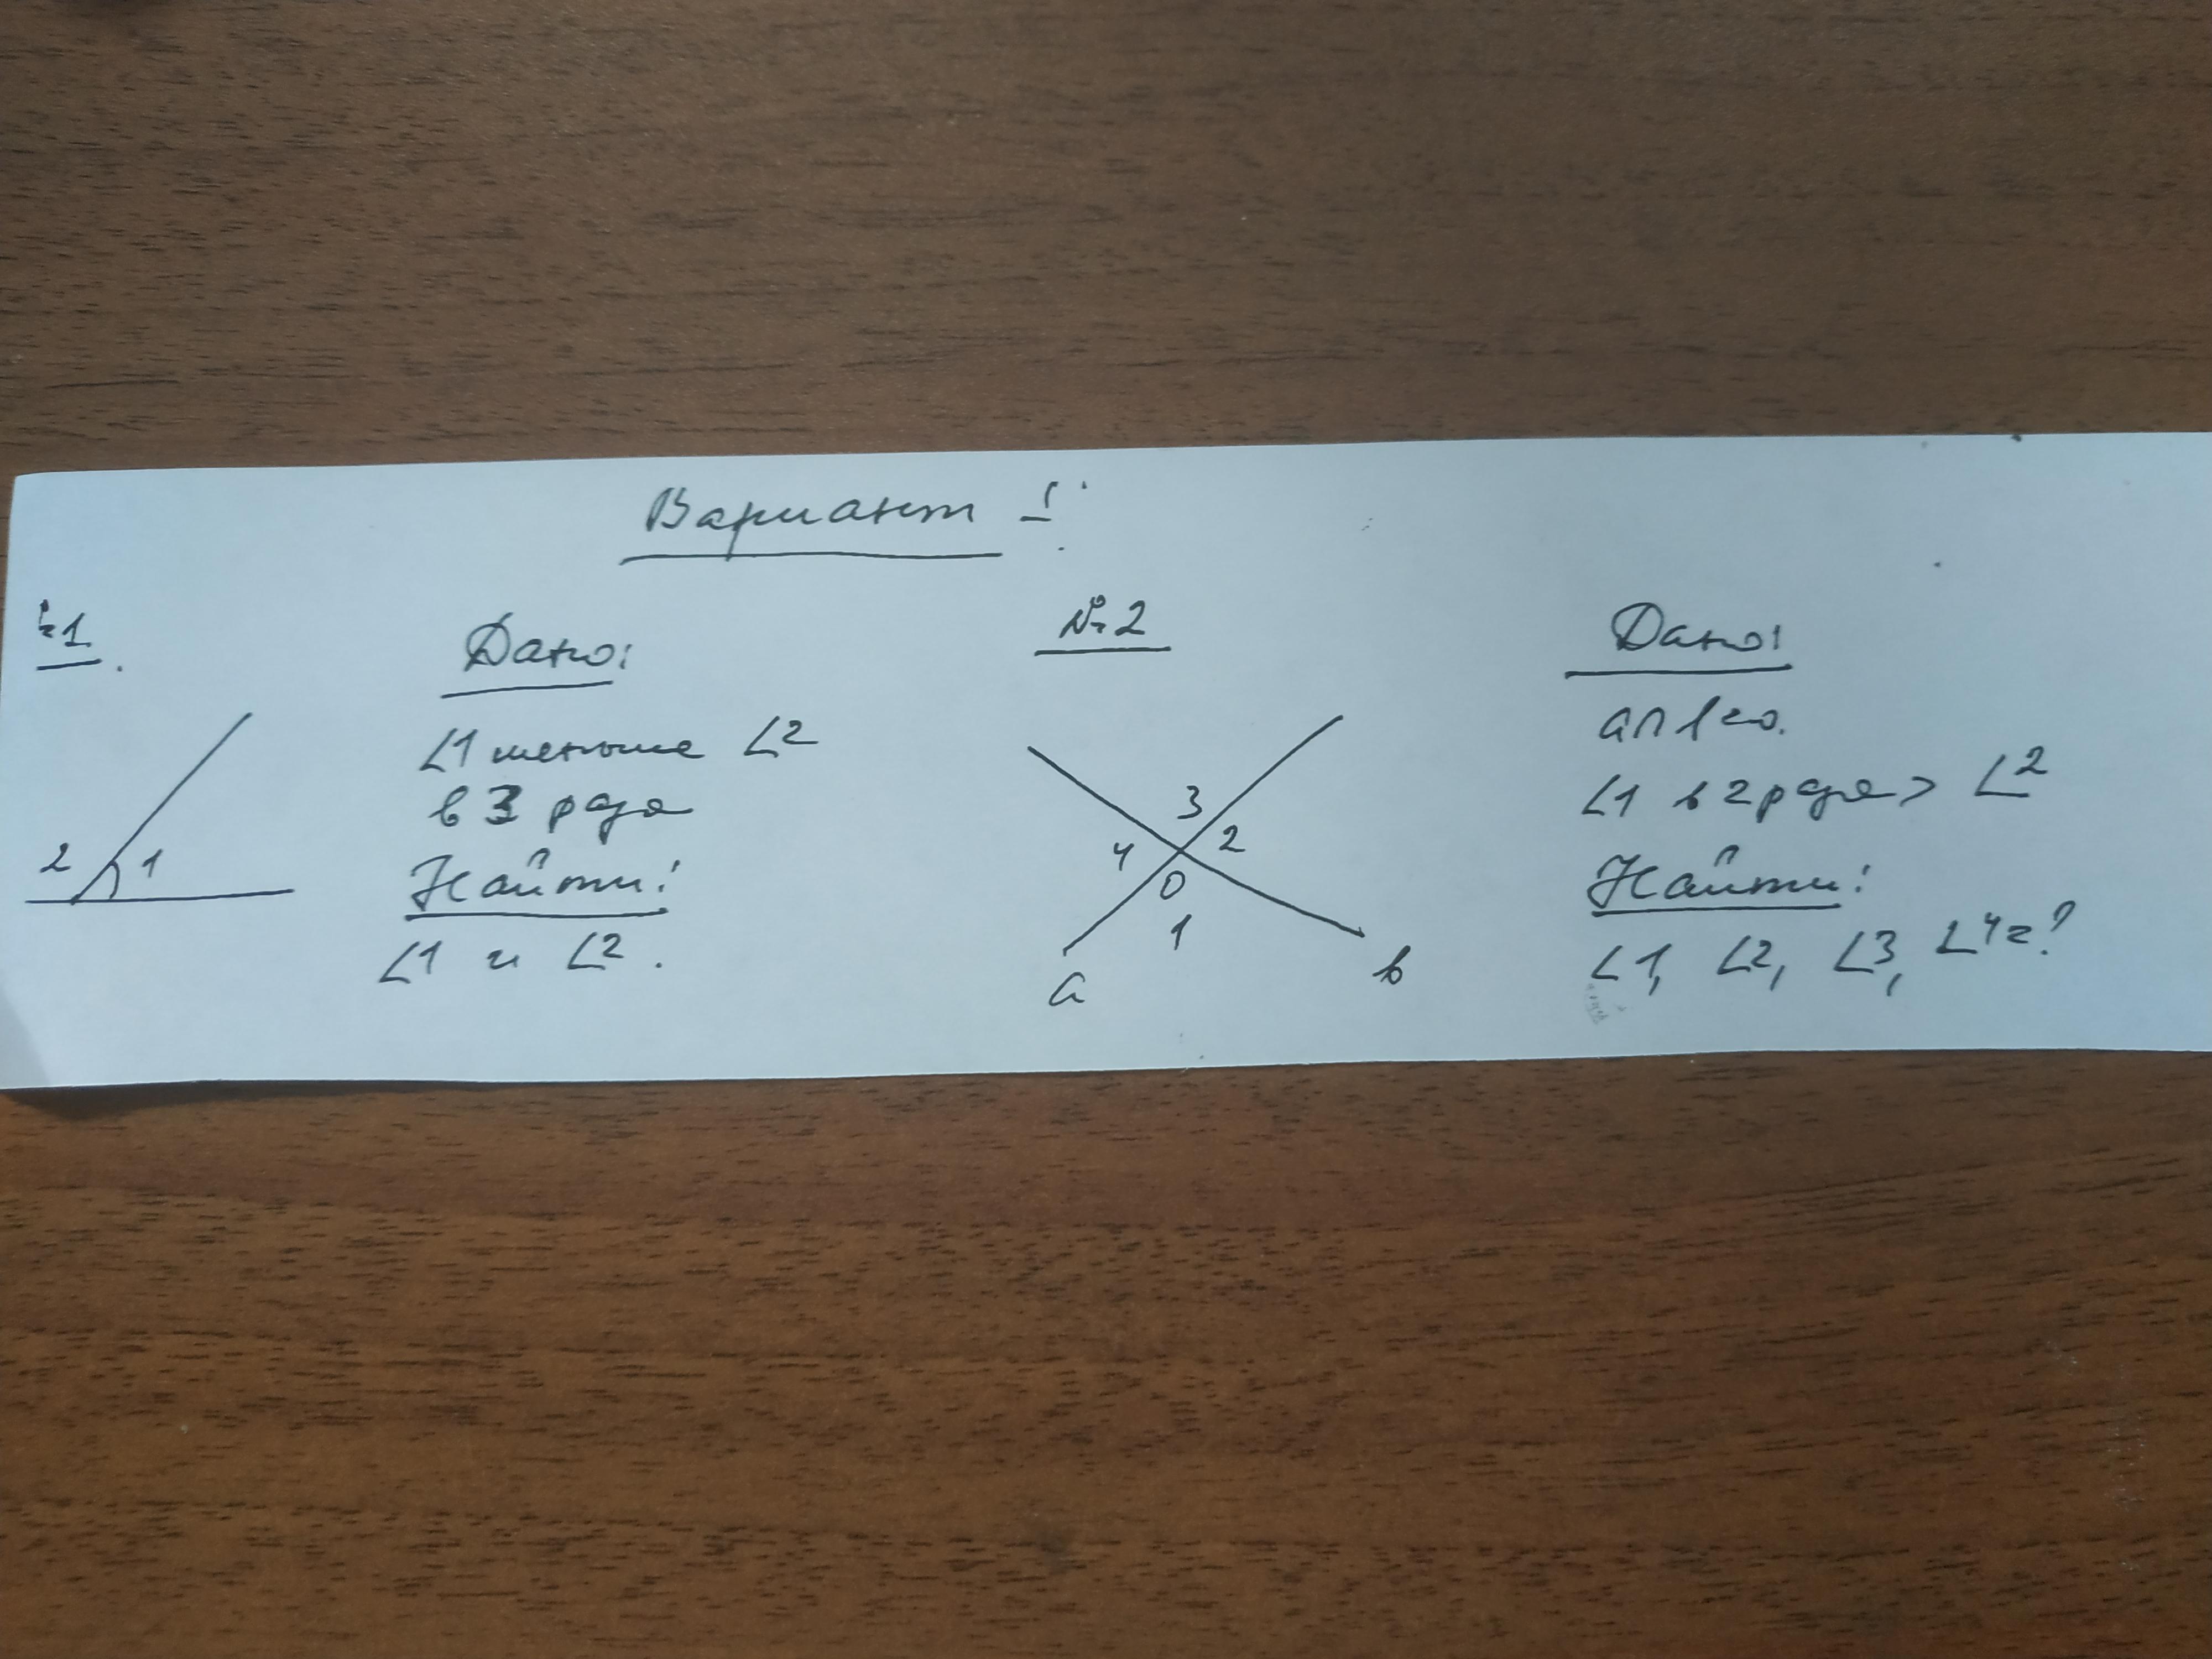 Вариант I
№1.
Дано:
∠1 меньше ∠2
в 3 раза
Найти:
∠1 и ∠2.
2 1
№2
3
4 2
O
1
a b
Дано:
a∩b=о.
∠1 в 2 раза > ∠2
Найти:
∠1, ∠2, ∠3, ∠4=?